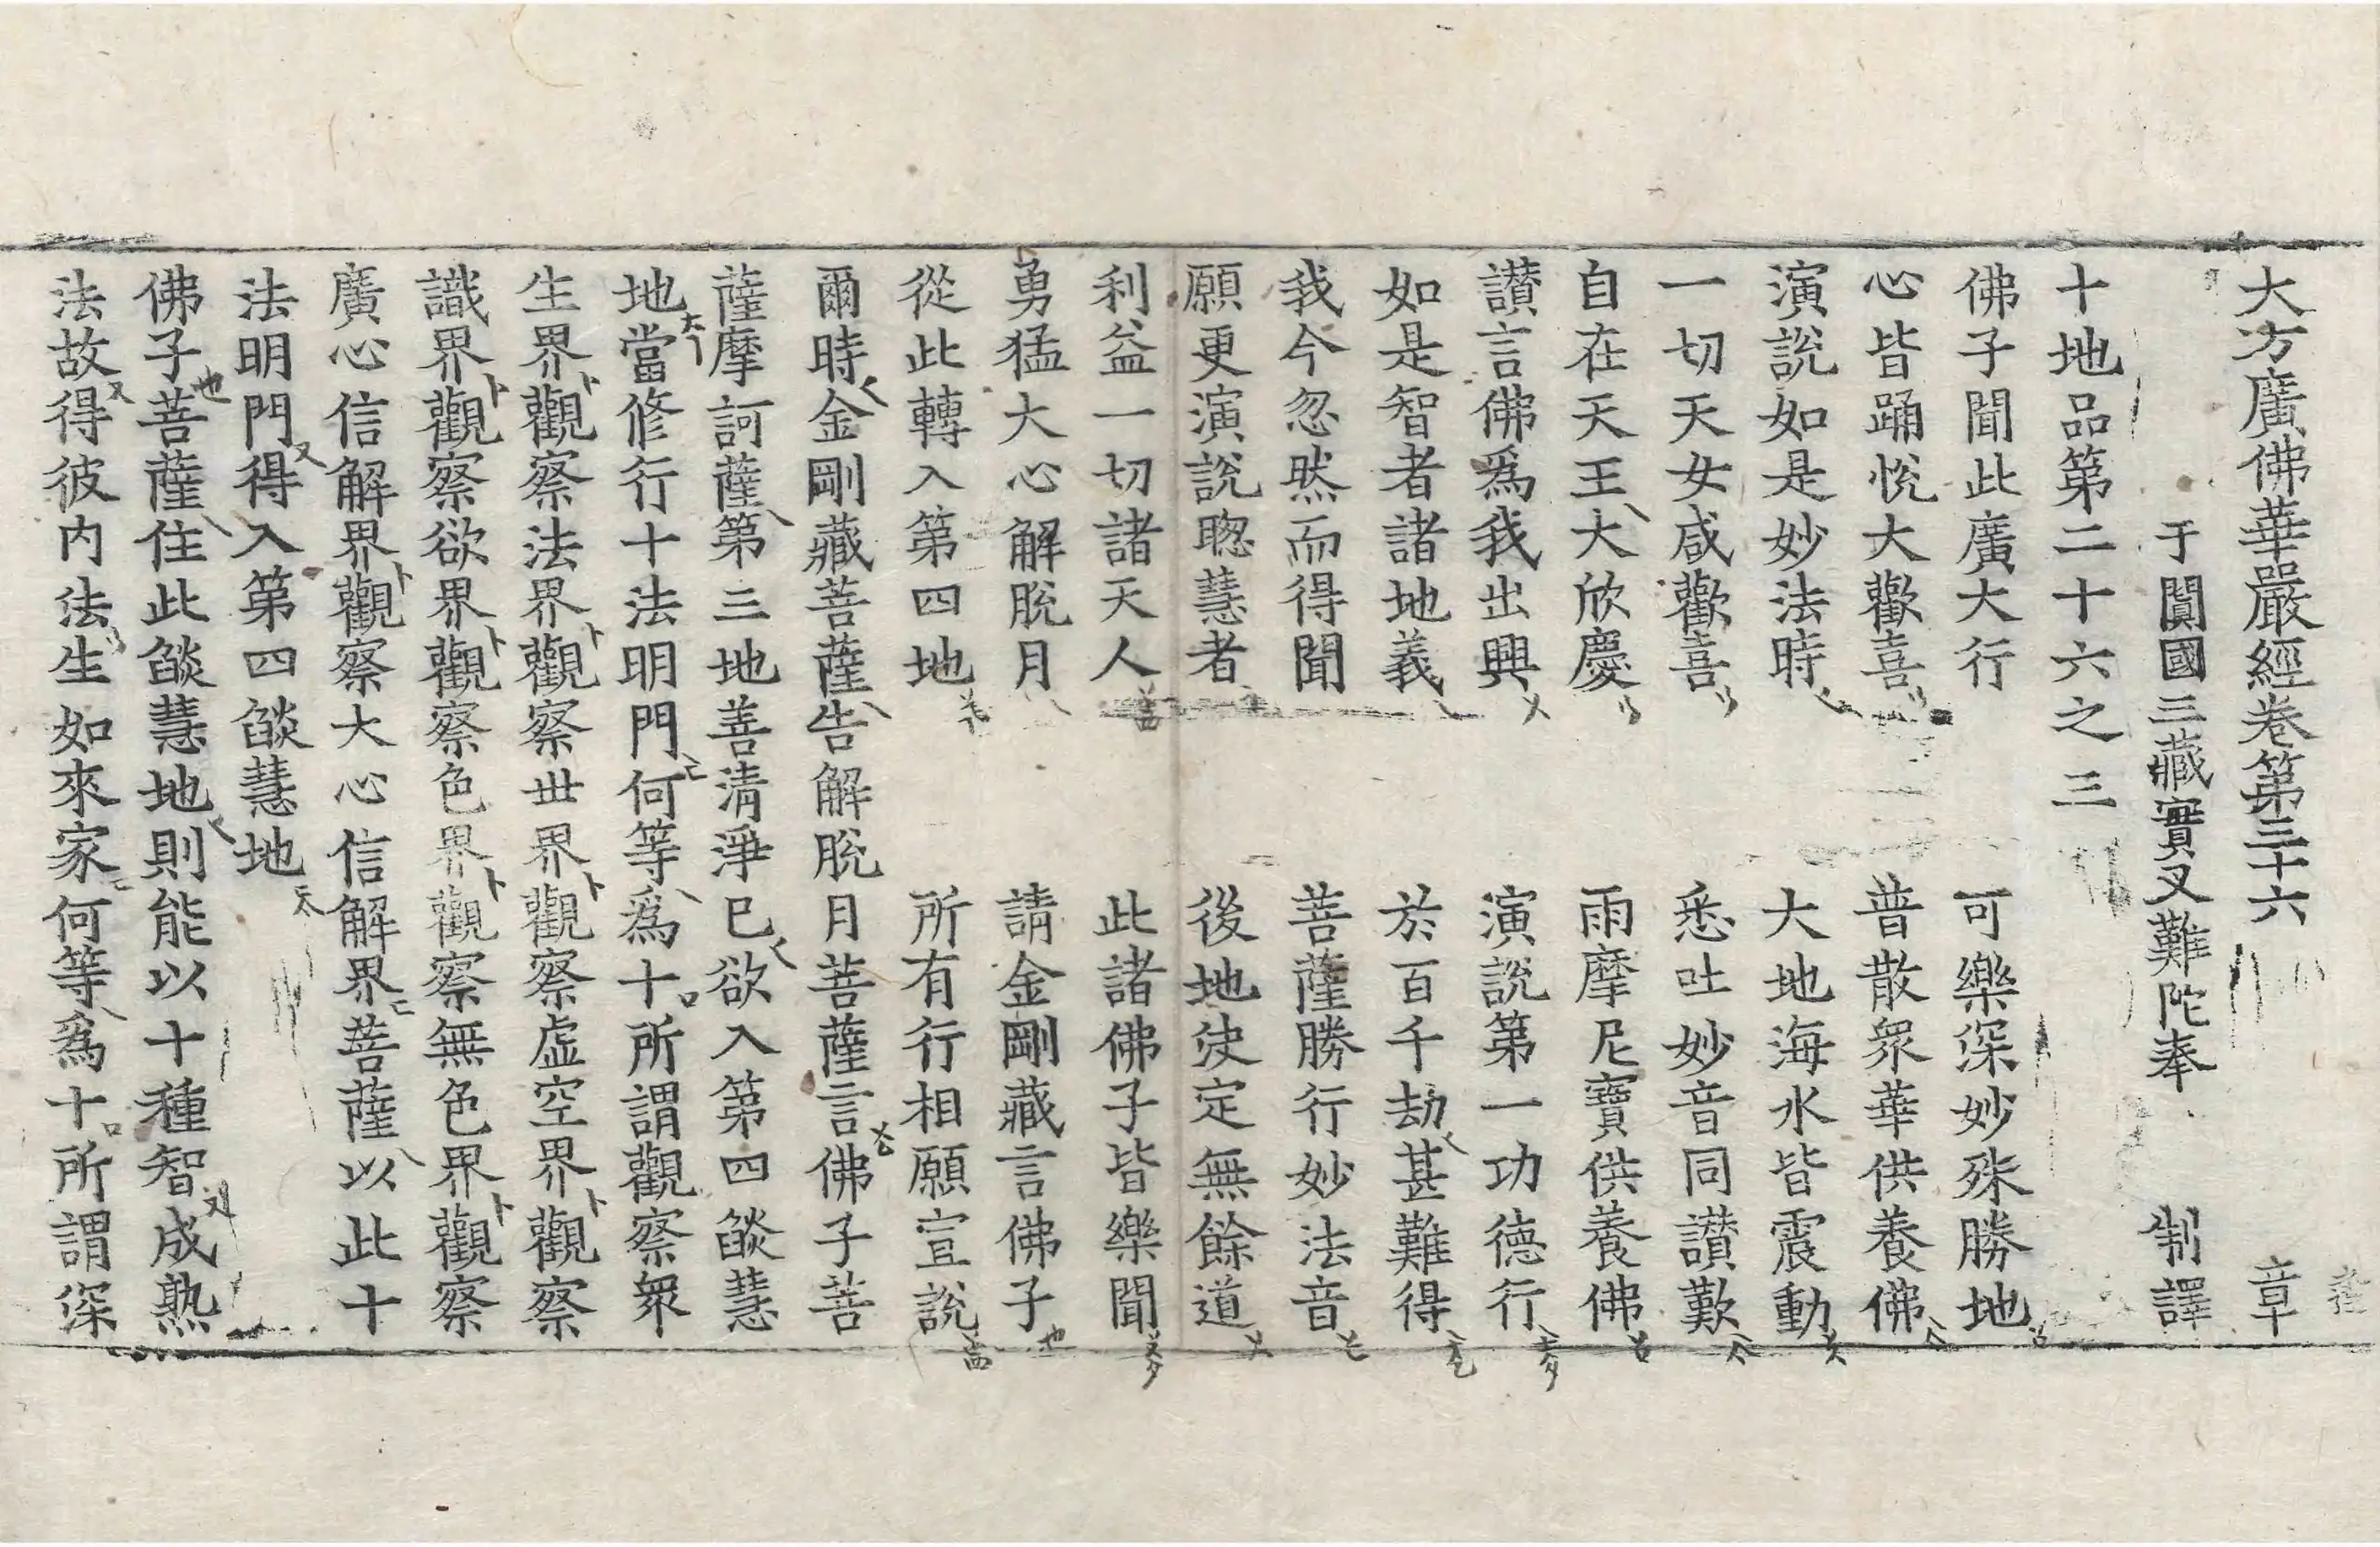 大方廣佛華嚴經卷第三十六 章
于闐國三藏實叉難陀奉 制譯
十地品第二十六之三
佛子聞此廣大行 可樂深妙殊勝地
心皆踊悅大歡喜 普散眾華供養佛
演說如是妙法時 大地海水皆震動
一切天女咸歡喜 悉吐妙音同讃歎
自在天王大欣慶 雨摩尼寶供養佛
讃言佛爲我出興 演說第一功德行
如是智者諸地義 於百千劫甚難得
我今忽然而得聞 菩薩勝行妙法音
願更演說聦慧者 後地决定無餘道
利益一切諸天人 此諸佛子皆樂聞
勇猛大心解脫月 請金剛藏言佛子
從此轉入第四地 所有行相願宣說
爾時金剛藏菩薩告解脫月菩薩言佛子菩
薩摩訶薩第三地善清淨已欲入第四燄慧
地當修行十法明門何等爲十所謂觀察眾
生界觀察法界觀察世界觀察虛空界觀察
識界觀察欲界觀察色界觀察無色界觀察
廣心信解界觀察大心信解界菩薩以此十
法明門得入第四燄慧地
佛子菩薩住此燄慧地則能以十種智成熟
法故得彼内法生如來家何等爲十所謂深